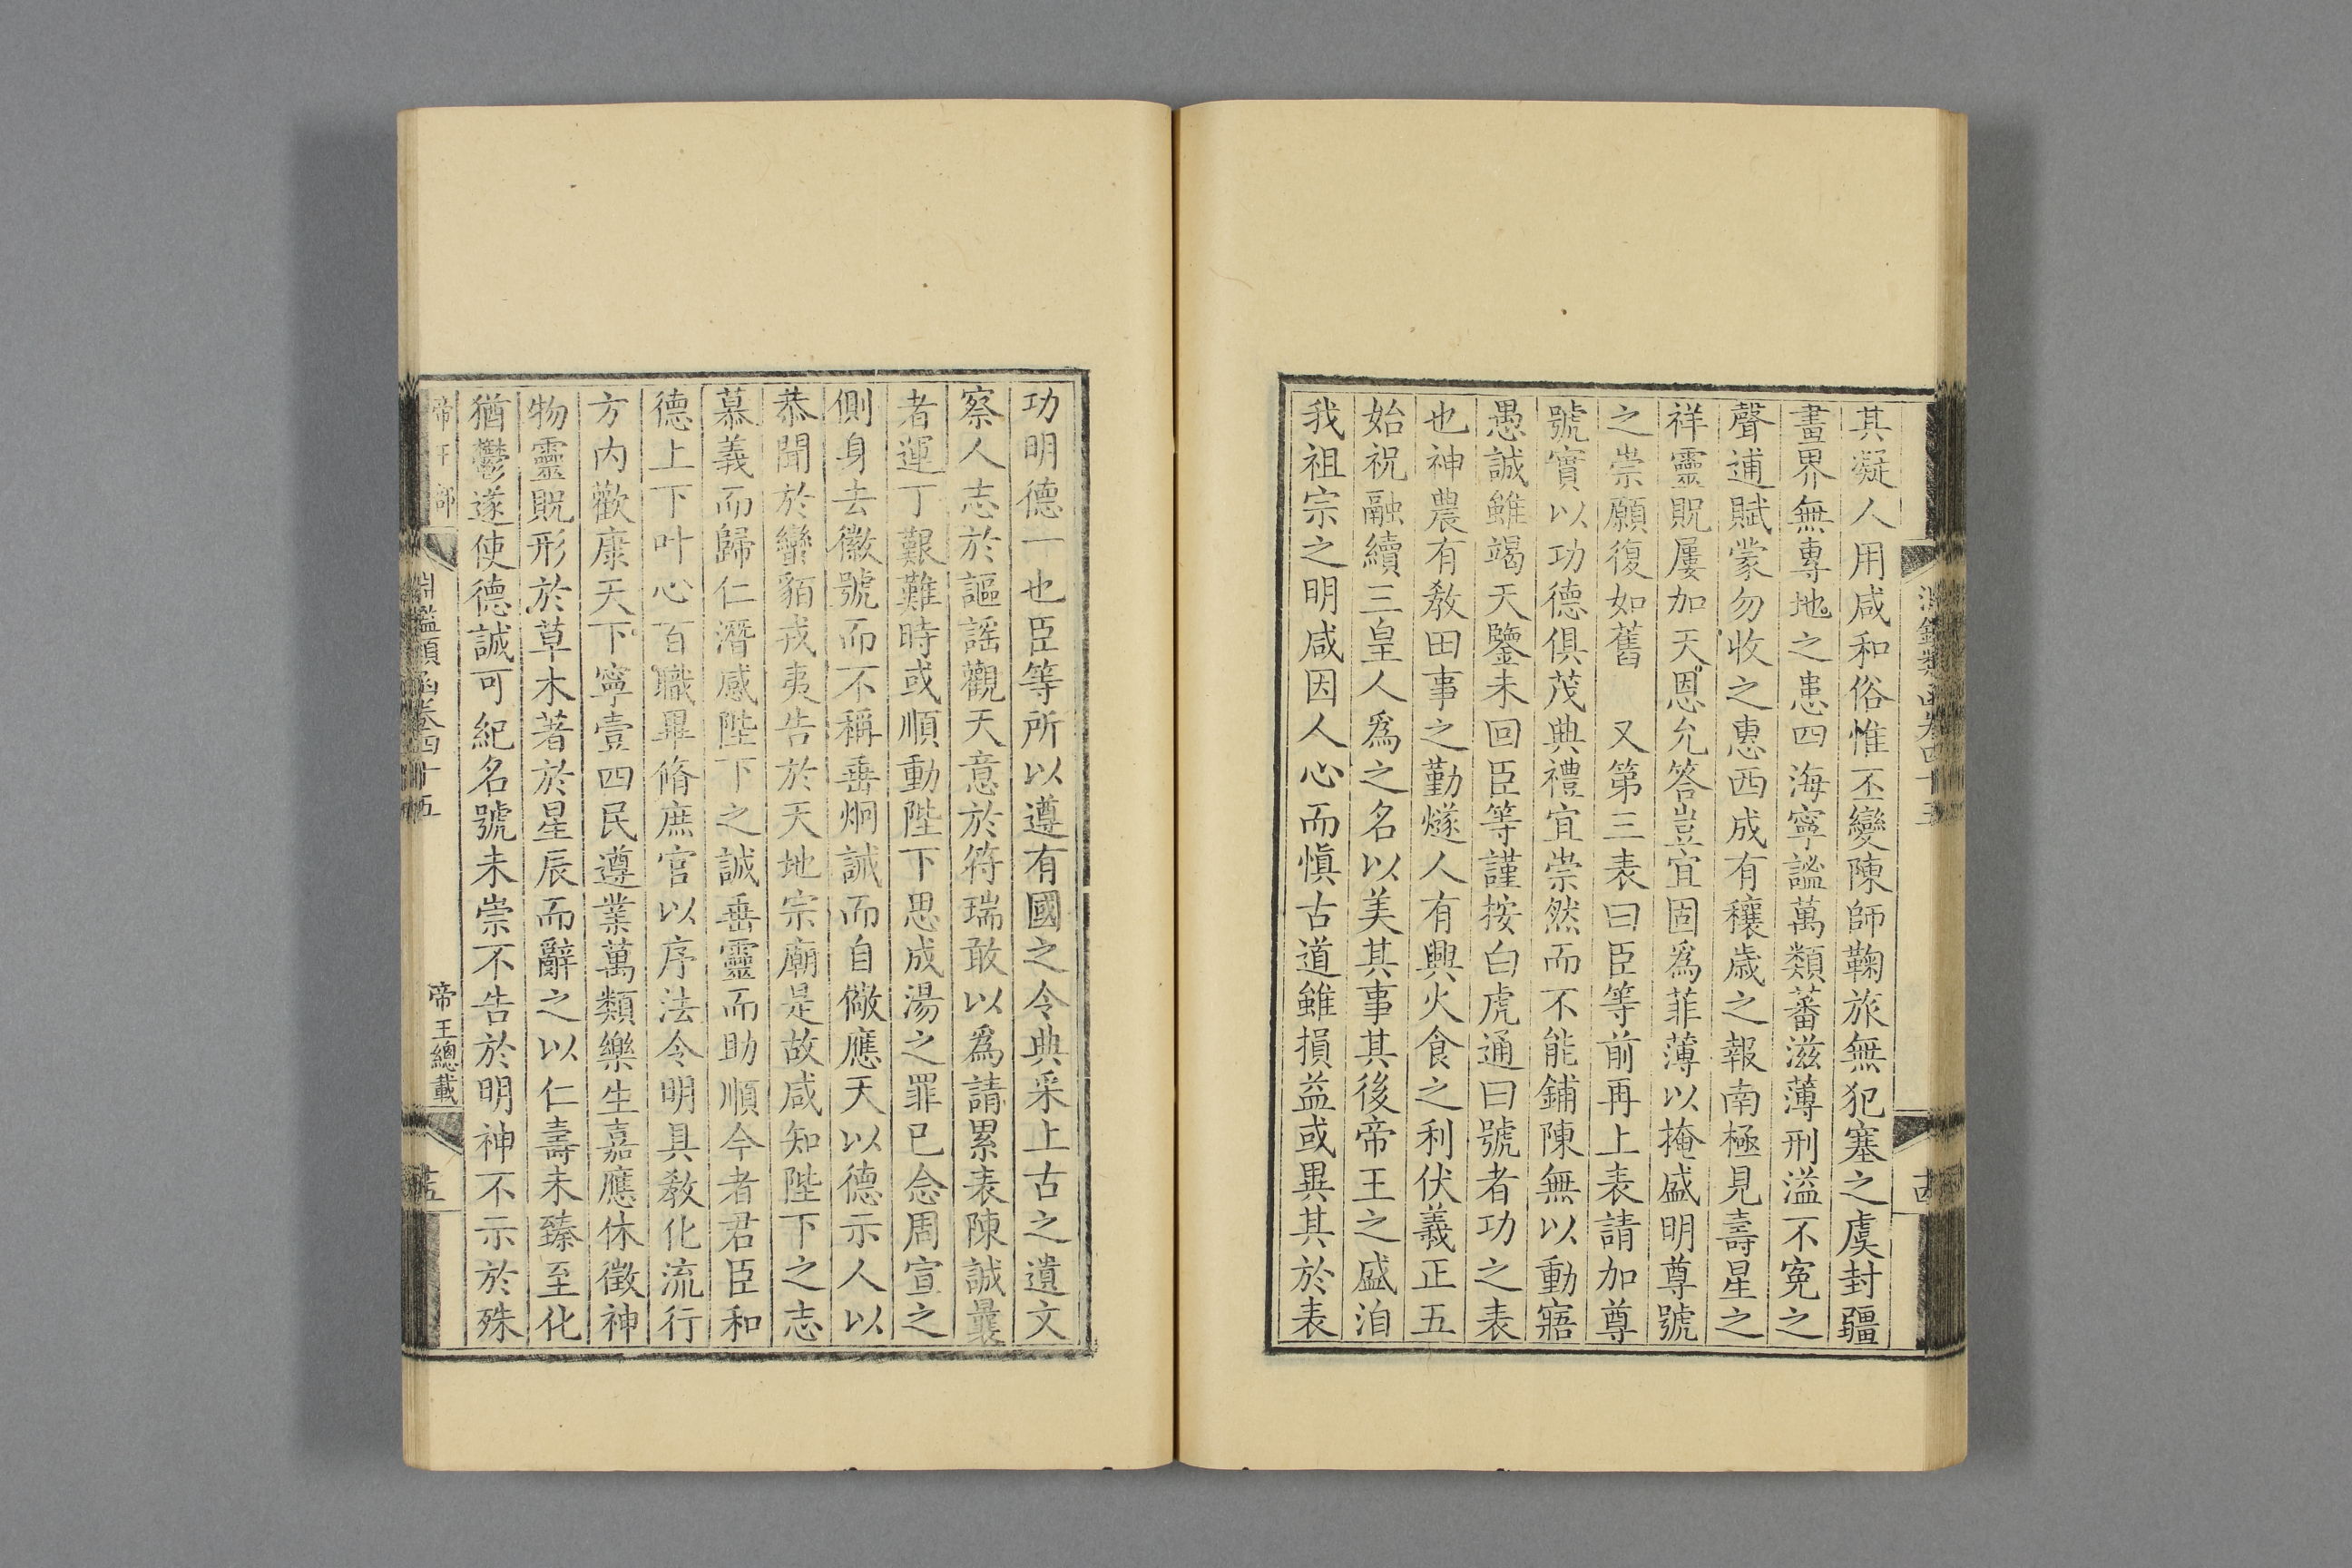 其凝人用咸和俗惟丕變陳師鞠旅無犯塞之虞封疆
畫界無專地之患四海寧謐萬類蕃滋薄刑溢不冤之
聲逋賦蒙勿收之惠西成有穰歲之報南極見壽星之
祥靈貺屢加天恩允答豈宜固爲菲薄以掩盛明尊號
之崇願復如舊 又第三表曰臣等前再上表請加尊
號實以功德俱茂典禮宜崇然而不能鋪陳無以動寤
愚誠雖竭天鑒未回臣等謹按白虎通曰號者功之表
也神農有教田事之勤燧人有興火食之利伏義正五
始祝融續三皇人爲之名以美其事其後帝王之盛洎
我祖宗之明咸因人心而愼古道雖損益或異其於表
功明德一也臣等所以遵有國之令典采上古之遺文
察人志於謳謠觀天意於符瑞敢以爲請累表陳誠曩
者運丁艱難時或順動陛下思成湯之罪已念周宣之
側身去徽號而不稱垂炯誠而自儆應天以德示人以
恭聞於蠻貊戎夷告於天地宗廟是故咸知陛下之志
慕義而歸仁潛感陛下之誠垂靈而助順今者君臣和
德上下叶心百職畢脩庶官以序法令明具敎化流行
方內歡康天下寧壹四民遵業萬類樂生嘉應休徵神
物靈貺形於草木著於星辰而辭之以仁壽未臻至化
猶鬱遂使德誠可紀名號未崇不告於明神不示於殊
帝王部 淵鑑類函卷四十五 帝王總載 十五